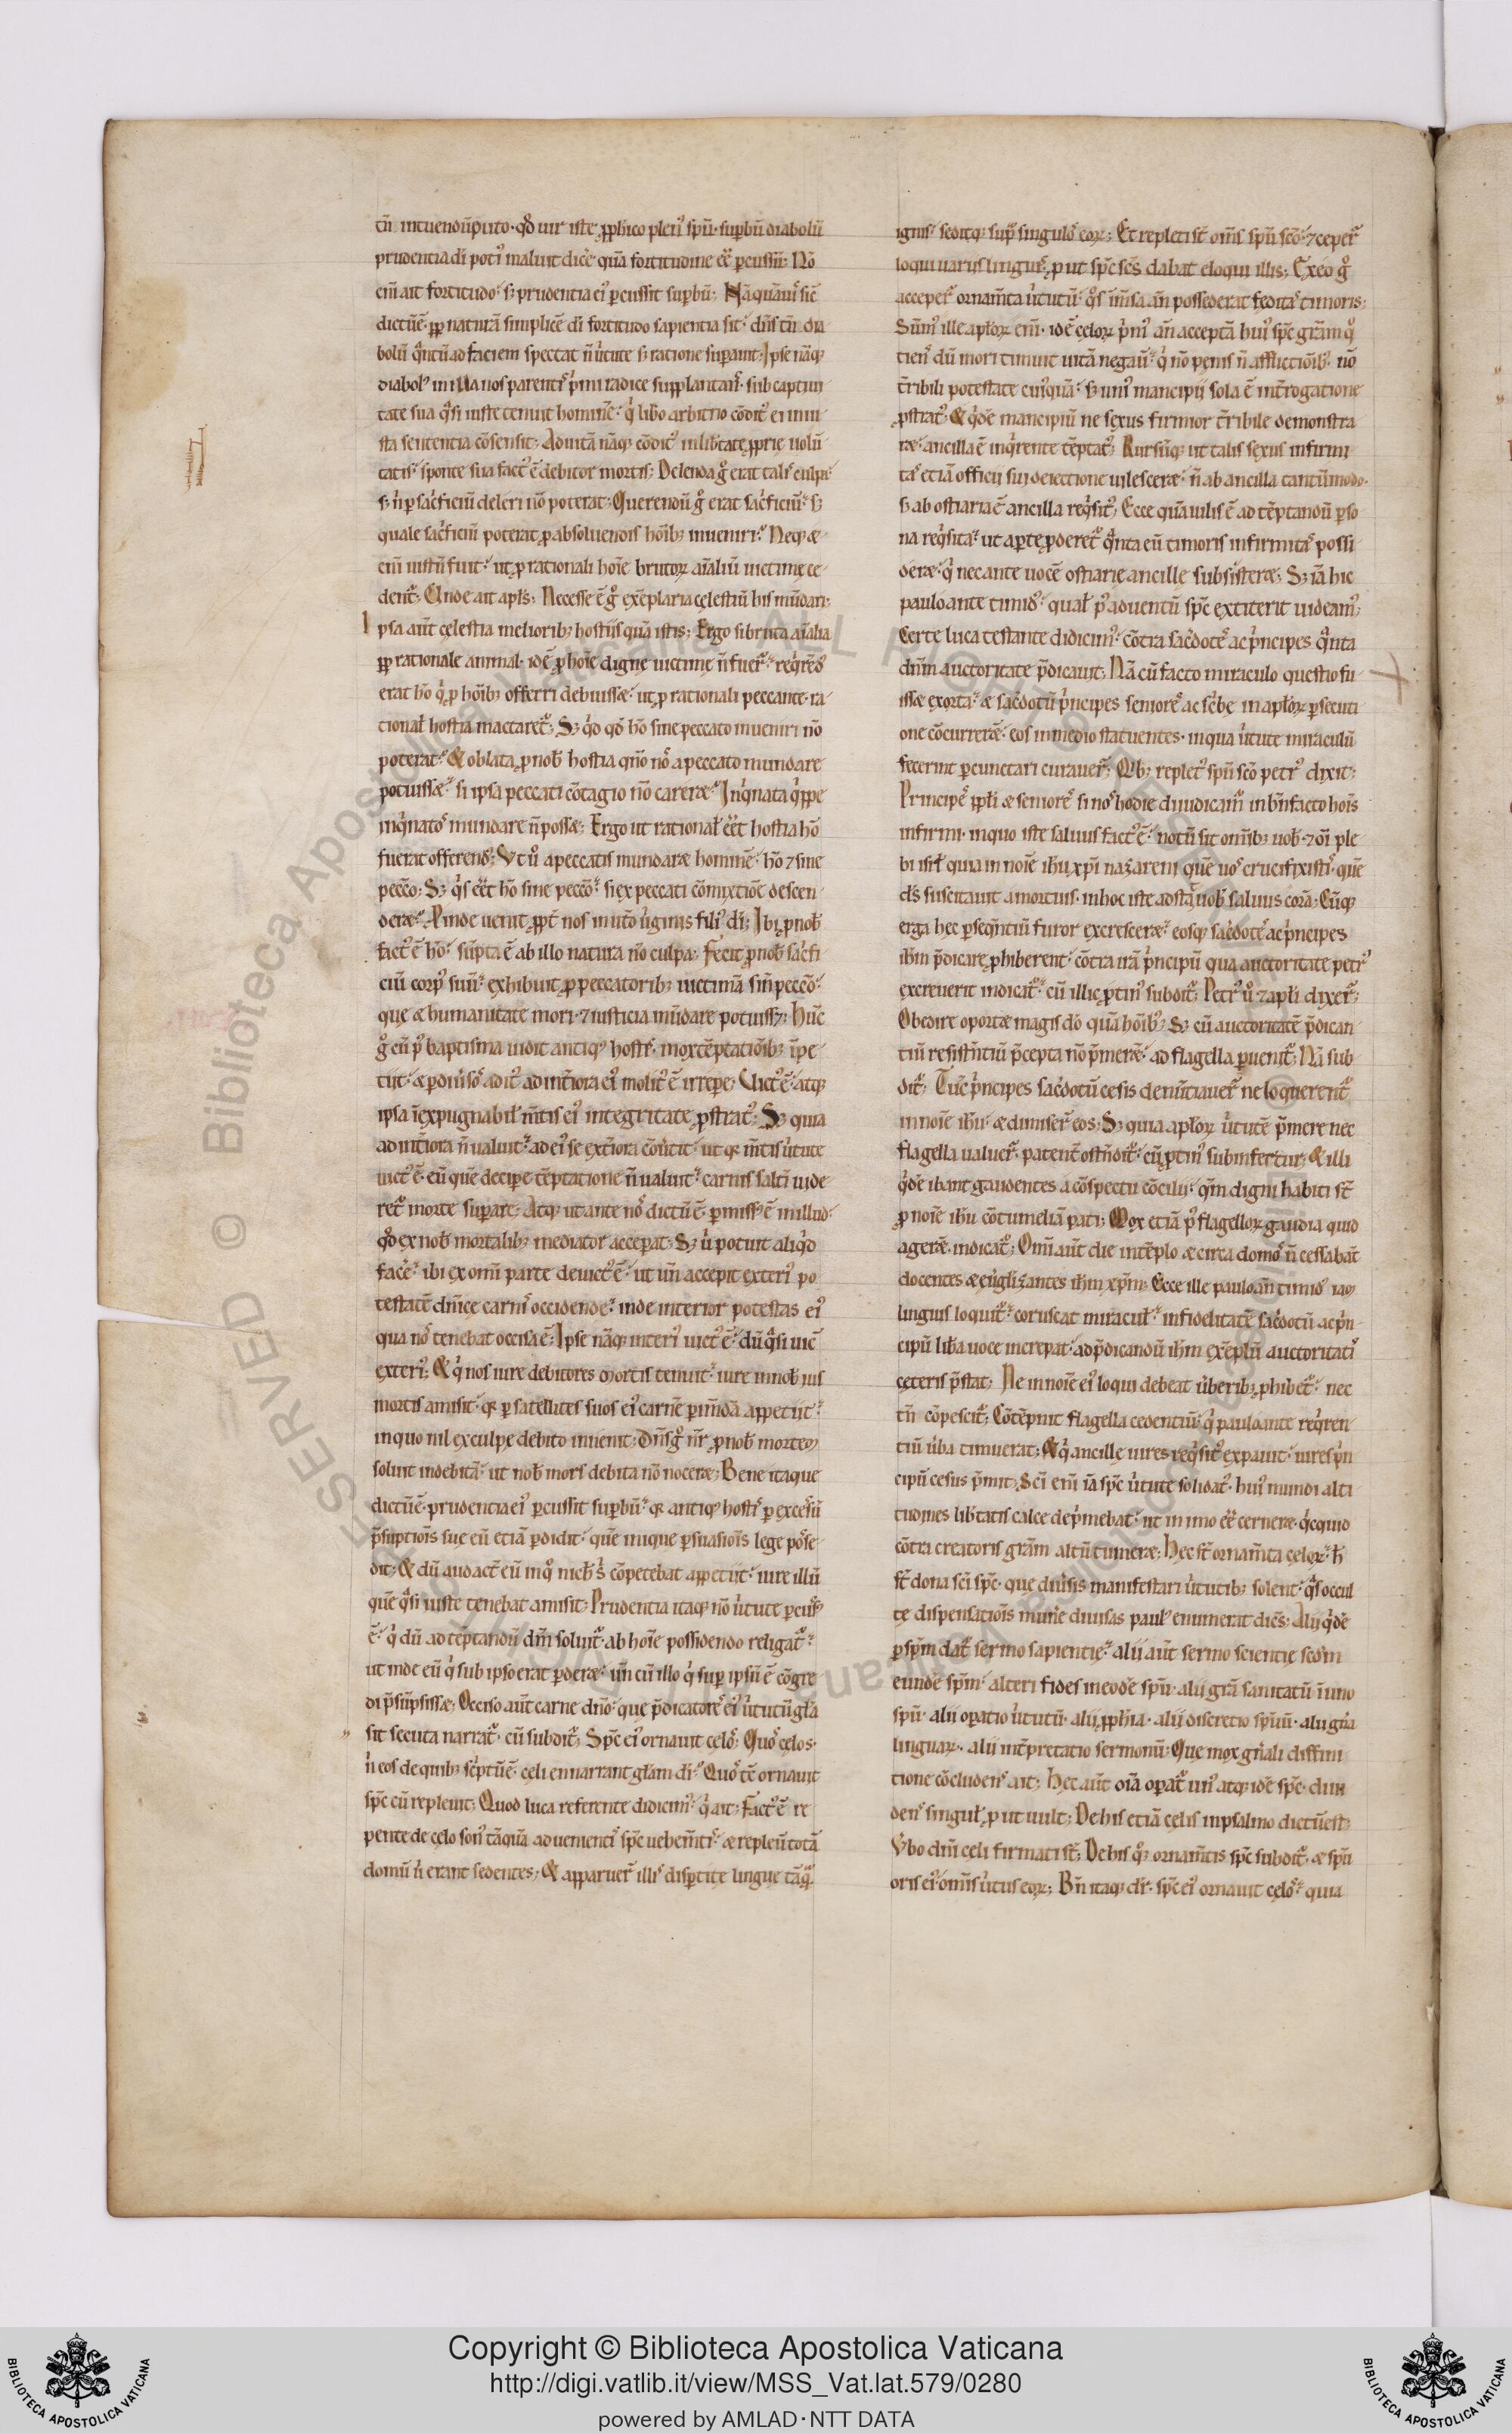 tñ intuendũ puto· qđ uir iste ꝓph̃ico plen᷒ spũ· supbũ diabolũ
prudentia di᷒ poti᷒ maluit dic̃e· quã fortitudine ẽẽ ꝑcussũ: Nõ
eni᷒ ait fortitudo᷒ sꝫ prudentia ei᷒ ꝑcussit supbũ; Nã quãui᷒ sic̃
dictũ ẽ· ꝓꝑ naturã simplicẽ di᷒ fortitudo sapientia sit᷒ dñs tñ dia
bolũ q̃ntũ ad faciem spectat ñ ũtute sꝫ ratione supauit; Ipse nãqꝫ
diabol᷒ in illa nos parent᷒ p̃mi radice supplantans· sub captiui
tate sua q̃si iuste tenuit hominẽ᷒ q̃ libo arbitrio cõdit᷒ ei iniu
sta sententia cõsensit; Ad uitã nãqꝫ cõdit᷒ in lib̃tate ꝓprie uolũ
tatis᷒ sponte sua fact᷒ ẽ debitor mortis; Delenda g̊ erat tal᷒ culpa᷒
sꝫ ñ ꝑ sac̃ficiũ deleri nõ poterat; Querendũ g̊ erat sac̃ficiũ᷒ sꝫ
quale sac̃ficiũ poterat ꝓ absoluendis hõibꝫ inueniri᷒ Neqꝫ æ
eni᷒ iustũ fuit᷒ ut ꝓ rationali hoĩe brutoꝝ aĩaliũ uictimę ce
derẽt; Unde ait apls; Necesse ẽ g̊ exẽplaria cęlestiũ his mũdari:
Ipsa aũt cęlestia melioribꝫ hostiis quã istis; Ergo si bruta aĩalia
ꝓꝑ rationale animal· idẽ ꝓ hoĩe dignę uictimę ñ fuer᷒ req̃rẽd᷒
erat hõ q̃ ꝓ hõibꝫ offerri debuissæ᷒ ut ꝓ rationali peccante· ra
tional hostia mactaret᷒; Sꝫ q̃d qđ hõ sine peccato inueniri nõ
poterat᷒ & oblata ꝓ nob hostia qñõ no᷒ a peccato mundare
potuissæ᷒ si ipsa peccati cõtagio nõ careræ᷒ Inq̃nata q̃ppe
inq̃nato᷒ mundare ñ possæ; Ergo ut rational ẽẽt hostia hõ
fuerat offerend᷒; Ut u᷒ a peccatis mundaræ hominẽ᷒ hõ ⁊ sine
peccõ; Sꝫ q̃s ẽẽt hõ sine peccõ᷒ si ex peccati cõmixtiõe descen
deræ᷒ Pinde uenit ꝓpt̃ nos in utõ ũginis fili᷒ di᷒; Ibi ꝓ nob
fact᷒ ẽ hõ᷒ sũpta ẽ ab illo natura nõ culpa; Fecit ꝓ nob sac̃fi
ciũ corp᷒ suũ᷒ exhibuit ꝓ peccatoribꝫ uictimã siñ peccõ᷒
que & humanitate mori· ⁊ iusticia mũdare potuissꝫ; Hũc
g̊ cũ p᷒ baptisma uidit antiq᷒ hosti᷒· mox tẽptatiõibꝫ ĩpe
tiit᷒ & ꝑ diũso᷒ adit᷒ ad int̃iora ei᷒ molit᷒ ẽ irrepe; Uict᷒ ẽ᷒ atqꝫ
ipsa ĩexpugnabil m̃tis ei᷒ integritate ꝓstrat᷒; Sꝫ quia
ad int̃iora ñ ualuit᷒ ad ei᷒ se ext̃iora cõũtit᷒ ut qꝛ m̃tis ũtute
uict᷒ ẽ· eũ quẽ decipe tẽptatione ñ ualuit᷒ carnis saltĩ uide
ret᷒ morte supare; Atqꝫ ut ante no᷒ dictũ ẽ· ꝑmiss᷒ ẽ in illud᷒
qđ ex nob mortalibꝫ mediator acceperat; Sꝫ ũ potuit aliq̃d
facẽ᷒ ibi ex omi parte deuict᷒ ẽ᷒ ut uñ accepit exteri᷒ po
testatẽ dñicę carni᷒ occidendę᷒ inde interior potestas ei᷒
qua no᷒ tenebat occisa ẽ; Ipse nãqꝫ interi᷒ uict᷒ ẽ᷒ dũ q̃si uic̃
exteri᷒; & q̃ nos iure debitores mortis tenuit᷒ iure in nob ius
mortis amisit᷒ qꝛ ꝑ satellites suos ei᷒ carnẽ ꝑimẽdã appetiit᷒
in quo nil ex culpę debito inuenit; Dñs g̊ ñr ꝓ nob mortẽ
soluit indebitã᷒ ut nob mors debita nõ noceræ; Bene itaque
dictũ ẽ· prudentia ei᷒ ꝑcussit supbũ᷒ qꝛ antiq᷒ hosti᷒ ꝑ excessũ
p̃suptiõis sue eũ etiã ꝑdidit᷒ quẽ inique ꝑsuasiõis lege posse
dit; & dũ audact̃ eũ in q᷒ nichil s᷒ cõpetebat appetiit᷒ iure illũ
quẽ q̃si iuste tenebat amisit; Prudentia itaqꝫ nõ ũtute ꝑcuss᷒
ẽ᷒ q̃ dũ ad tẽptandũ dñm soluit᷒ ab hoĩe possidendo religat᷒᷒
ut inde eũ q̃ sub ipso erat ꝑderæ᷒ uñ cũ illo q̃ sup ipsũ ẽ cõgre
di p̃supsissæ; Occiso aũt carne dño᷒ que p̃dicatore᷒ ei᷒ ũtutũ gła
sit secuta narrat᷒· cũ subdit᷒; Spc̃ ei᷒ ornauit cęlo᷒; Quo᷒ cęlos·
ñ eos de quibꝫ sc̃ptũ ẽ· cęli enarrant głam di᷒᷒ Quo᷒ tc̃ ornauit
spc̃ cũ repleuit; Quod luca referente didicim᷒᷒ q̃ ait; Fact᷒ ẽ re
pente de cęlo son᷒ tãquã aduenienti᷒ spc̃ uehem̃ti᷒᷒ & repleũ totã
domũ ũ erant sedentes; & apparuer᷒ illi᷒ disptitę linguę tãq̃
ignis᷒ seditqꝫ sup᷒ singulo᷒ eoꝝ; Et repleti st̃ omĩs spũ scõ᷒ ⁊ ceper᷒
loqui uariis linguis᷒, ꝓ ut spc̃ scs̃ dabat eloqui illis; Ex eo g̊
acceper᷒ ornam̃ta ũtutũ᷒ q᷒s ĩm̃sa añ possederat fedita᷒ timoris;
Sũm᷒ ille apłoꝝ eni᷒· idẽ cęloꝝ p̃m᷒ añ acceptã hui᷒ spc̃ gr̃am q᷒
tien᷒ dũ mori timuit uitã negau᷒᷒ q̃ nõ penis ñ afflictiõibꝫ· nõ
t̃ribili potestate cui᷒quã᷒ sꝫ uni᷒ mancipii sola ẽ int̃rogatione
ꝓstrat᷒; & q̃dẽ mancipiũ ne sexus firmior t̃ribile demonstra
ræ᷒ ancilla ẽ inq̃rente tẽptat᷒; Rursũqꝫ ut talis sexus infirmi
ta᷒ etiã officii sui deiectione uilesceræ᷒ ñ ab ancilla tantũmodo·
sꝫ ab ostiaria ẽ ancilla req̃sit᷒; Ecce quã uilis ẽ ad tẽptandũ ꝑso
na req̃sita᷒ ut aꝑte ꝓderet᷒ q̃nta eũ timoris infirmita᷒ possi
deræ᷒ q̃ nec ante uocẽ ostiarię ancillę subsisteræ; Sꝫ iã hic
paulo ante timid᷒᷒ qual p᷒ aduentũ spc̃ extiterit uideam᷒;
Certe luca testante didicim᷒᷒ cõtra sac̃dote᷒ ac p̃ncipes q̃nta
dñm auctoritate p̃dicauit; Nã cũ facto miraculo questio fu
issæ exorta᷒ & sac̃dotũ p̃ncipes seniore᷒ ac sc̃bę in apłoꝝ ꝑsecuti
one cõcurrerẽ᷒ eos in medio statuentes· in qua ũtute miraculũ
fecerint ꝑcunctari curauer᷒; Qibꝫ replet᷒ spũ scõ petr᷒ dixit;
Principe᷒ ppłi & seniore᷒ si no᷒ hodie diiudicam᷒ in bñfacto hoĩs
infirmi· in quo iste saluus fact᷒ ẽ᷒ notũ sit omĩbꝫ uob᷒ ⁊ oĩ ple
bi isrł quia in noĩe ihũ xpĩ nazareni quẽ uo᷒ crucifixisti᷒· quẽ
ds̃ suscitauit a mortuis· in hoc iste adstat uob saluus corã; Cũqꝫ
erga hec ꝑseq̃ntiũ furor excresceræ᷒ eosqꝫ sac̃dote᷒ ac p̃ncipes
ihm̃ p̃dicare ꝓhiberent᷒ cõtra irã p̃ncipũ qua auctoritate petr᷒
excreuerit indicat᷒᷒ cũ illic ꝓtin᷒ subdit᷒; Petr᷒ u᷒ ⁊ apłi dixer᷒;
Obedire oportæ magis dõ quã hõibꝫ; Sꝫ cũ auctoritatẽ p̃dican
tiũ resistñtiũ p̃cepta nõ p̃merẽ᷒ ad flagella ꝑuenit᷒; Nã sub
dit᷒; Tũc p̃ncipes sac̃dotũ cesis denũtiauer᷒ ne loquerent᷒
in noĩe ihũ᷒ & dimiser᷒ eos; Sꝫ quia apłoꝝ ũtutẽ p̃mere nec
flagella ualuer᷒· patent̃ ostñdit᷒᷒ cũ ꝓtin᷒ subinfertur; & illi
q̃dẽ ibant gaudentes a cõspectu cõcilii᷒ qm̃ digni habiti st̃
ꝓ noĩe ihũ cõtumeliã pati; Mox etiã p᷒ flagelloꝝ gaudia quid
agerẽ· indicat᷒; Omĩ aũt die in tẽplo & circa domo᷒ ñ cessabãt
docentes & eũglizantes ihm̃ xpm̃; Ecce ille paulo añ timid᷒ iaꝫ
linguis loquit᷒᷒ coruscat miracul᷒᷒ infidelitatẽ sac̃dotũ ac p̃n
cipũ lib̃a uoce increpat᷒ ad p̃dicandũ ihm̃ exẽplũ auctoritati᷒
cęteris p̃stat; Ne in noĩe ei᷒ loqui debeat ũberibꝫ ꝓhibet᷒᷒ nec
tñ cõpescit᷒; Cõtẽpnit flagella cedentiũ᷒ q̃ paulo ante req̃ren
tiũ ũba timuerat; & q̃ ancillę uires req̃sit᷒ expauit᷒ uires p̃n
cipũ cesus p̃mit; Sci᷒ eni᷒ iã spc̃ ũtute solidat᷒· hui᷒ mundi alti
tudines lib̃tatis calce dep̃mebat᷒ ut in imo ẽẽ cerneræ· q̃cquid
cõtra creatoris gr̃am altũ tumeræ; Hec st̃ ornam̃ta cęloꝝ᷒ h̃
st̃ dona sci᷒ spc̃· que diũsis manifestari ũtutibꝫ solent᷒ q̃s occul
te dispensatiõis mune᷒ diuisas paul᷒ enumerat dic̃s; Alii q̃dẽ
ꝑ spm̃ dat᷒ sermo sapientię᷒ alii aũt sermo scientię scd̃m
eundẽ spm̃᷒ alteri fides in eodẽ spũ· alii gr̃a sanitatũ ĩ uno
spũ· alii oꝑatio ũtutũ· alii ꝓph̃ia· alii discretio spũũ· alii gñа
linguaꝝ· alii int̃pretatio sermonũ; Que mox gñali diffini
tione cõcluden᷒ ait; Hec aũt oĩa oꝑat᷒ un᷒ atqꝫ idẽ spc̃· diui
den᷒ singul᷒ ꝓ ut uult; De his etiã cęlis in psalmo dictũ est;
Ubo dñi cęli firmati st̃; De his q᷒qꝫ ornam̃tis spc̃ subdit᷒· & spũ
oris ei᷒ omĩs ũtus eoꝝ; Bñ itaqꝫ dr᷒· spc̃ ei᷒ ornauit cęlo᷒᷒ quia
Copyright © Biblioteca Apostolica Vaticana
http://digi.vatlib.it/view/MSS_Vat.lat.579/0280
powered by AMLAD·NTT DATA